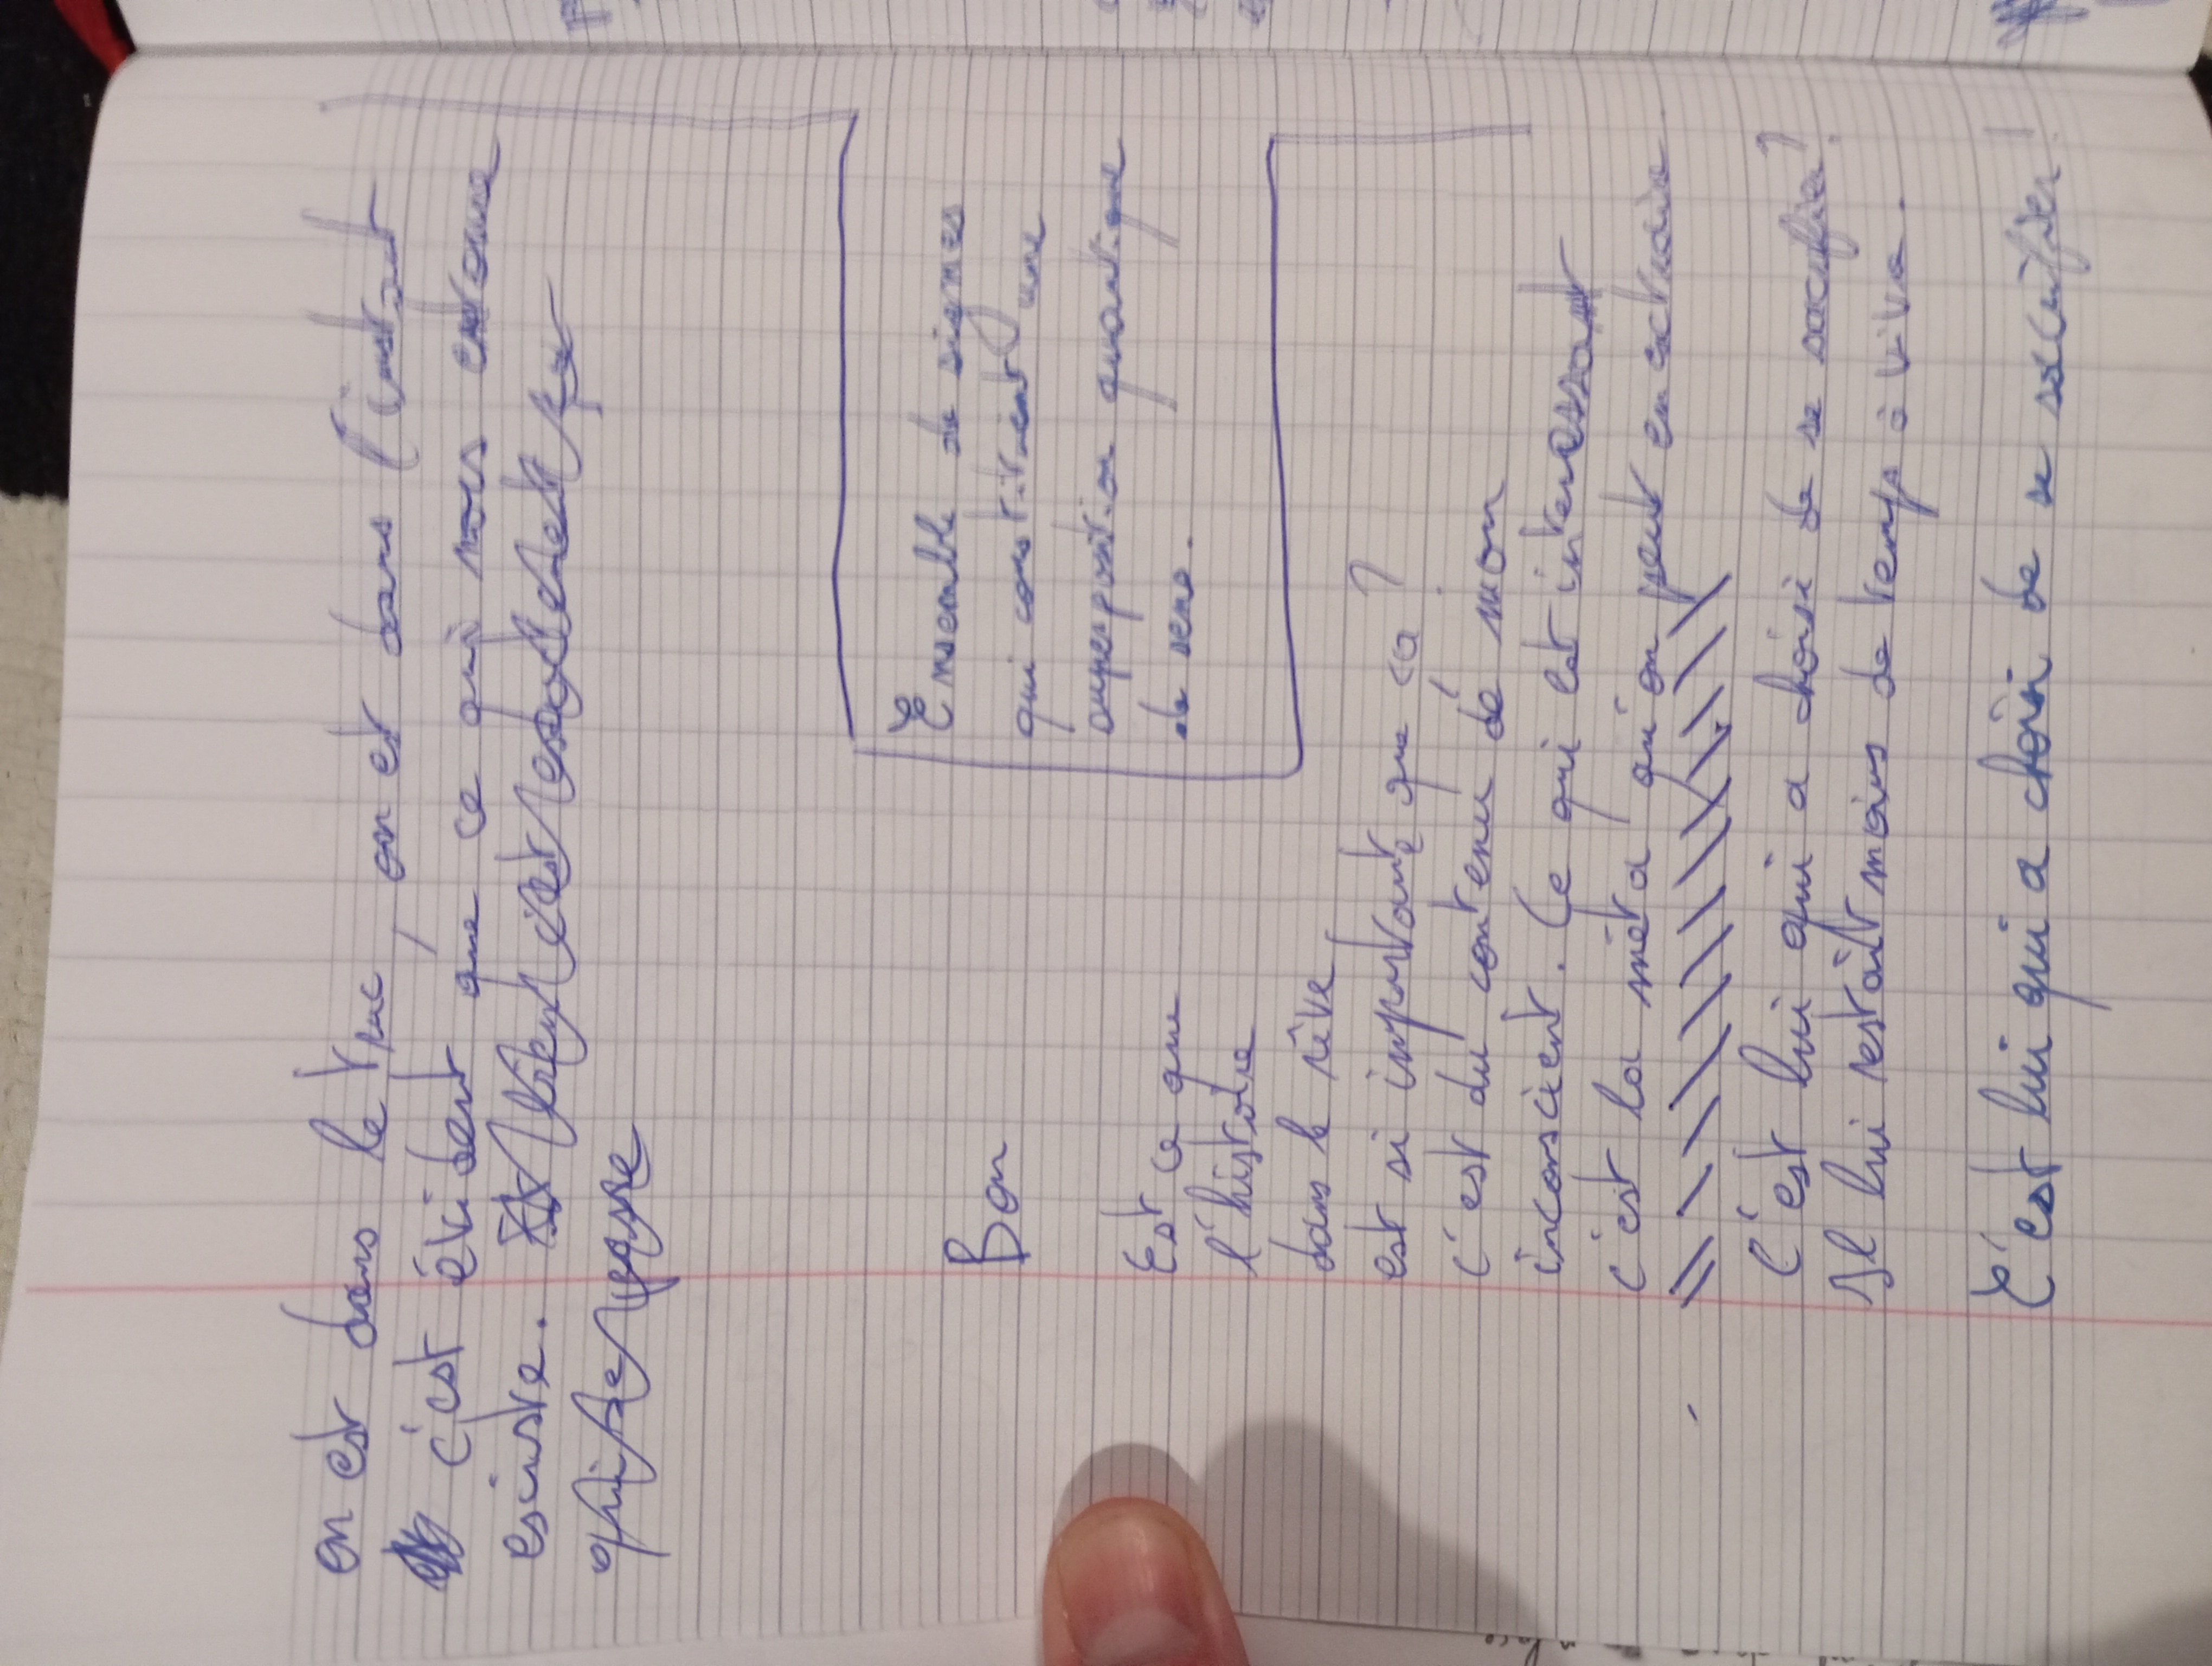 on est dans le truc, on est dans l'instant
c'est évident que ce qui nous entoure
existe.
qui se passe
Ensemble de signes
qui constituent une
superposition quantique
de sens.
Bon
Est ce que
l'histoire
dans le rêve
est si importante que ça ?
c'est du contenu de mon
inconscient. Ce qui est interessant
c'est la méta qu'on peut en extraire
C'est lui qui a choisi de se sacrifier ?
Il lui restait moins de temps à vivre.
C'est lui qui a choisi de se sacrifier !